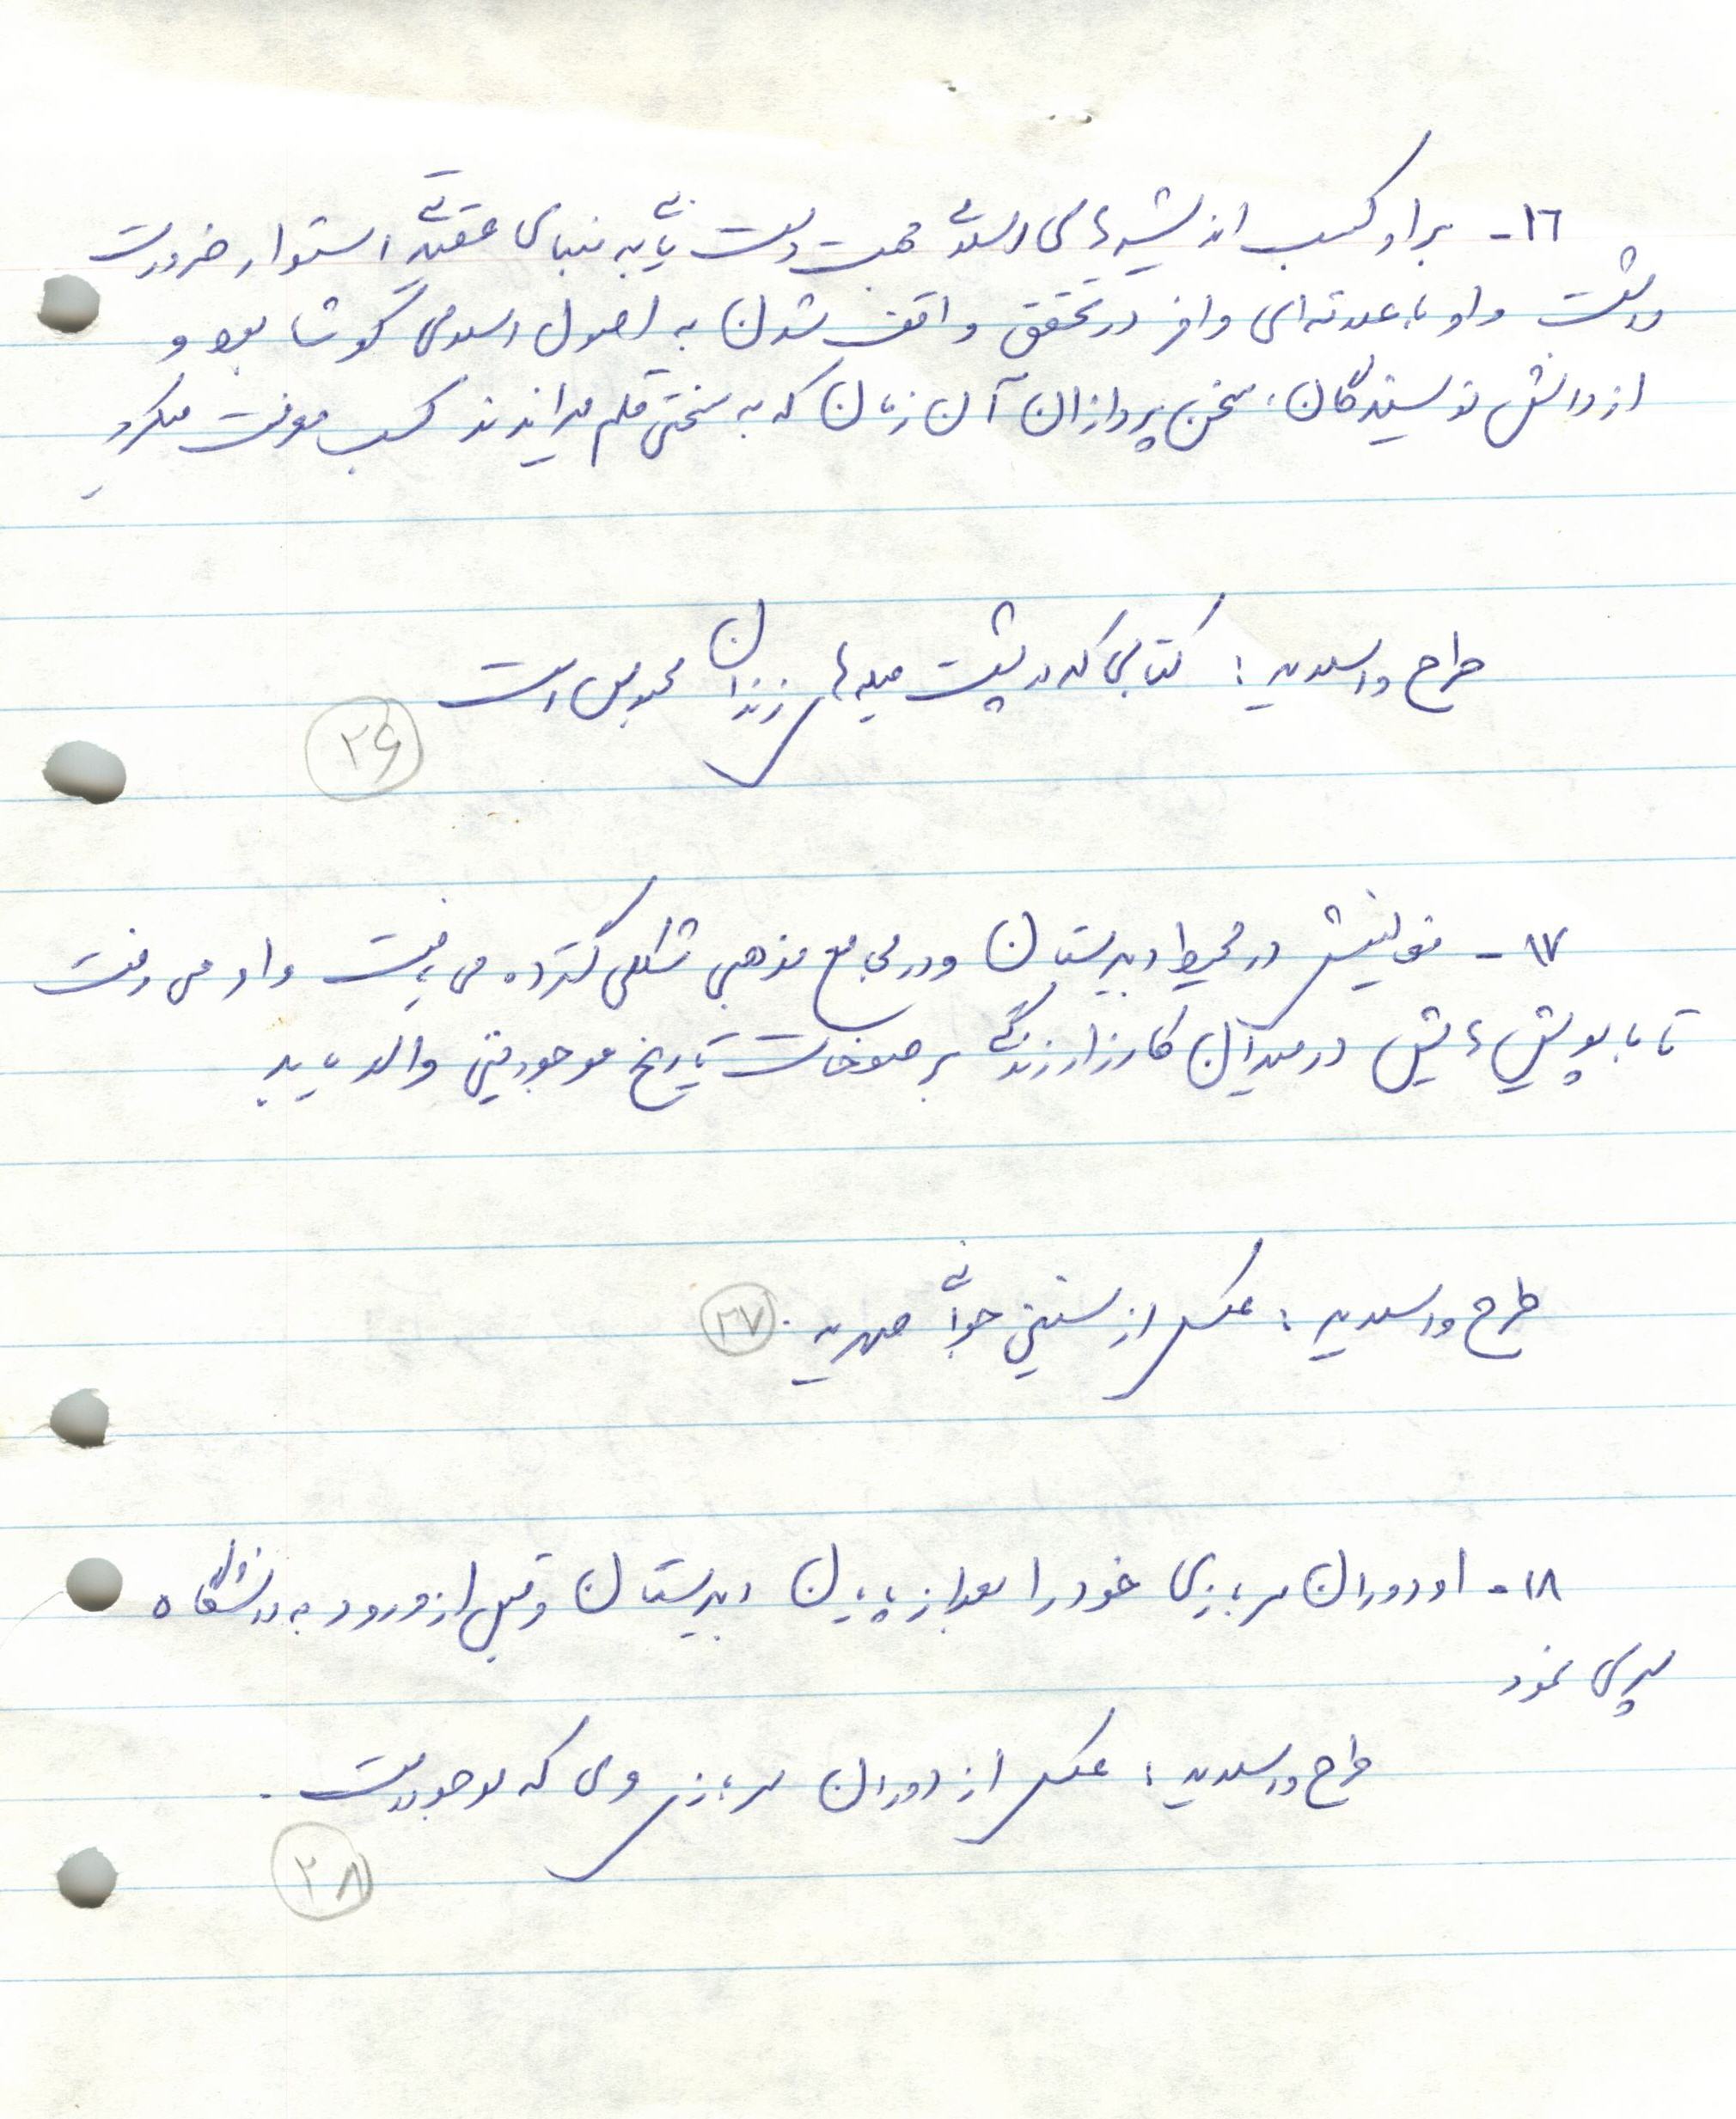 ۱۶- برای او کسب اندیشه‌های اسلامی جهت دست یابی به مبنای عقیدتی استوار ضرورت
داشت و او با علاقه‌ای وافر در تحقق واقف شدن به اصول اسلامی کوشا بود و
از دانش نویسندگان، سخن پردازان آن زمان که به سختی قلم میراندند کسب معرفت میکرد
طرح و اسلاید : کتابی که در پشت میله‌های زندان محبوس است
۲۶
۱۷- فعالیتش در محیط دبیرستان و در مجامع مذهبی شکلی گسترده می یافت و او می رفت
تا با پویش‌هایش در میدان کارزار زندگی بر صفحات تاریخ موجودیتی والا بیابد
طرح و اسلاید : عکسی از سنین جوانی مهدیه .
۲۷
۱۸- او دوران سربازی خود را بعد از پایان دبیرستان و قبل از ورود به دانشگاه
سپری نمود
طرح و اسلاید : عکسی از دوران سربازی وی که موجود است .
۲۸